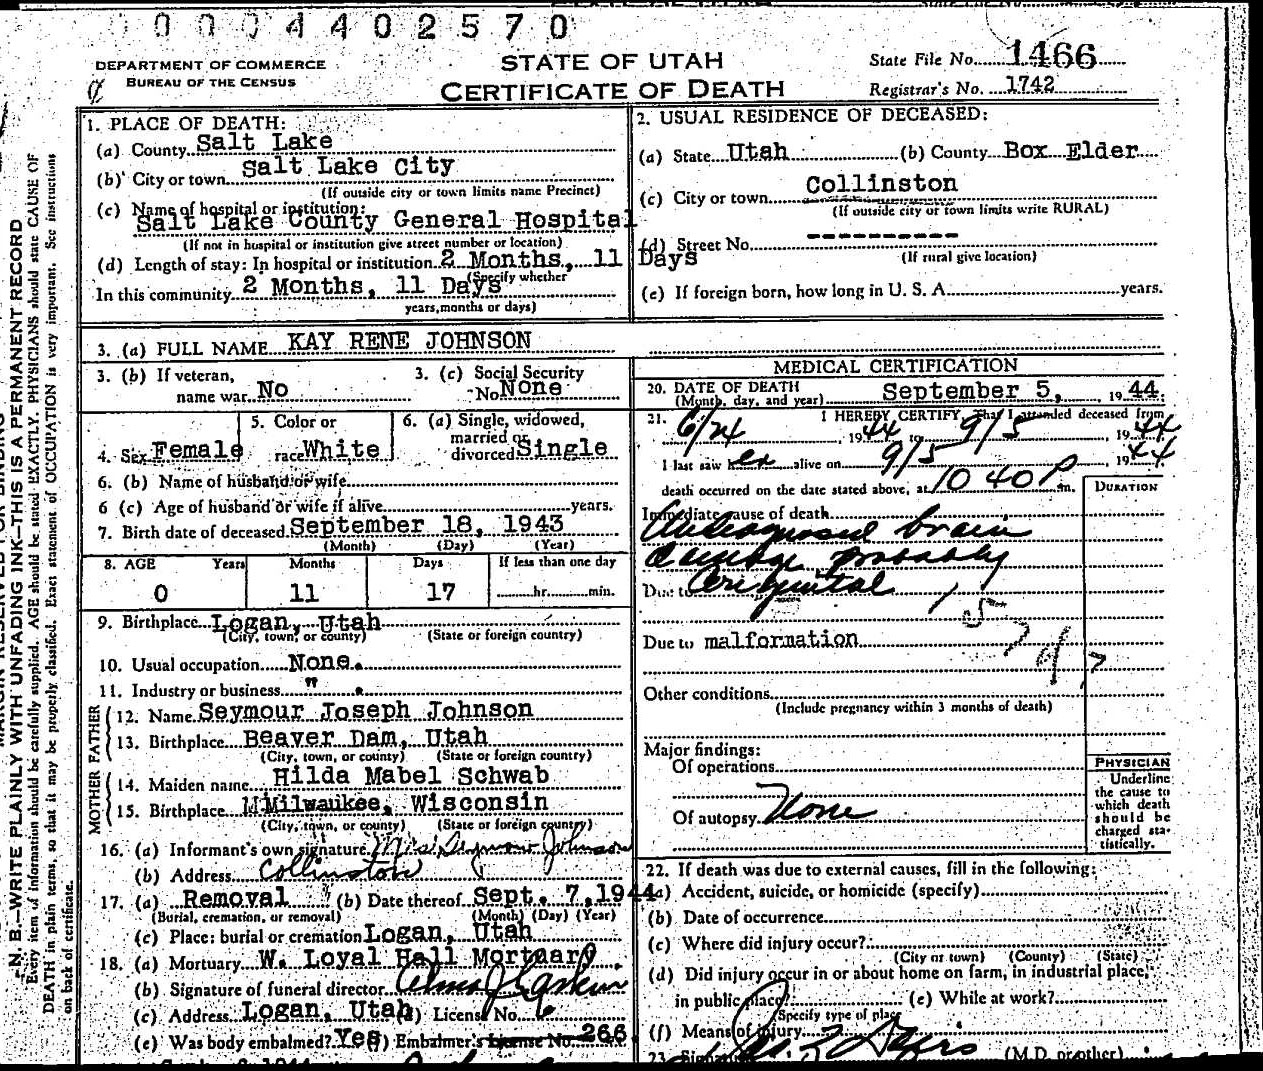 0004402570
DEPARTMENT OF COMMERCE
BUREAU OF THE CENSUS
STATE OF UTAH
CERTIFICATE OF DEATH
State File No. 1466
Registrar's No. 1742
1. PLACE OF DEATH:
(a) County Salt Lake
(b) City or town Salt Lake City
(If outside city or town limits name Precinct)
(c) Name of hospital or institution:
Salt Lake County General Hospital
(If not in hospital or institution give street number or location)
(d) Length of stay: In hospital or institution 2 Months, 11 Days
(Specify whether
In this community 2 Months, 11 Days
years, months or days)
2. USUAL RESIDENCE OF DECEASED:
(a) State Utah (b) County Box Elder
(c) City or town Collinston
(If outside city or town limits write RURAL)
(d) Street No. ----------
(If rural give location)
(e) If foreign born, how long in U. S. A. years.
3. (a) FULL NAME KAY RENE JOHNSON
3. (b) If veteran, name war No
3. (c) Social Security No. None
4. Sex Female
5. Color or race White
6. (a) Single, widowed, married or divorced Single
6. (b) Name of husband or wife
6 (c) Age of husband or wife if alive years.
7. Birth date of deceased September 18, 1943
(Month) (Day) (Year)
8. AGE Years Months Days If less than one day
0 11 17 hr. min.
9. Birthplace Logan, Utah
(City, town, or county) (State or foreign country)
10. Usual occupation None.
11. Industry or business " .
FATHER
12. Name Seymour Joseph Johnson
13. Birthplace Beaver Dam, Utah
(City, town, or county) (State or foreign country)
MOTHER
14. Maiden name Hilda Mabel Schwab
15. Birthplace Milwaukee, Wisconsin
(City, town, or county) (State or foreign country)
16. (a) Informant's own signature Mrs. Seymour Johnson
(b) Address Collinston
17. (a) Removal (b) Date thereof Sept. 7, 1944
(Burial, cremation, or removal) (Month) (Day) (Year)
(c) Place: burial or cremation Logan, Utah
18. (a) Mortuary W. Loyal Hall Mortuary
(b) Signature of funeral director
(c) Address Logan, Utah (d) License No. 6
(e) Was body embalmed? Yes (f) Embalmer's License No. 266
MEDICAL CERTIFICATION
20. DATE OF DEATH
(Month, day, and year) September 5, 1944.
21. I HEREBY CERTIFY, That I attended deceased from
6/24, 1944 to 9/5, 1944
I last saw her alive on 9/5, 1944
death occurred on the date stated above, at 10 40 P m.
DURATION
Immediate cause of death
Undiagnosed brain
damage, probably
Due to Congenital
157
Due to malformation
Other conditions
(Include pregnancy within 3 months of death)
Major findings:
Of operations
Of autopsy None
PHYSICIAN
Underline
the cause to
which death
should be
charged sta-
tistically.
22. If death was due to external causes, fill in the following:
(a) Accident, suicide, or homicide (specify)
(b) Date of occurrence
(c) Where did injury occur?
(City or town) (County) (State)
(d) Did injury occur in or about home on farm, in industrial place,
in public place? (e) While at work?
(Specify type of place
(f) Means of injury
23. Signature (M.D. or other)
N. B.—WRITE PLAINLY WITH UNFADING INK—THIS IS A PERMANENT RECORD
Every item of information should be carefully supplied. AGE should be stated EXACTLY. PHYSICIANS should state CAUSE OF
DEATH in plain terms, so that it may be properly classified. Exact statement of OCCUPATION is very important. See instructions
on back of certificate.